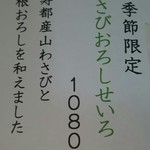 季節限定
さびおろしせいろ
1080
寿都産山わさびと
根おろしを和えました